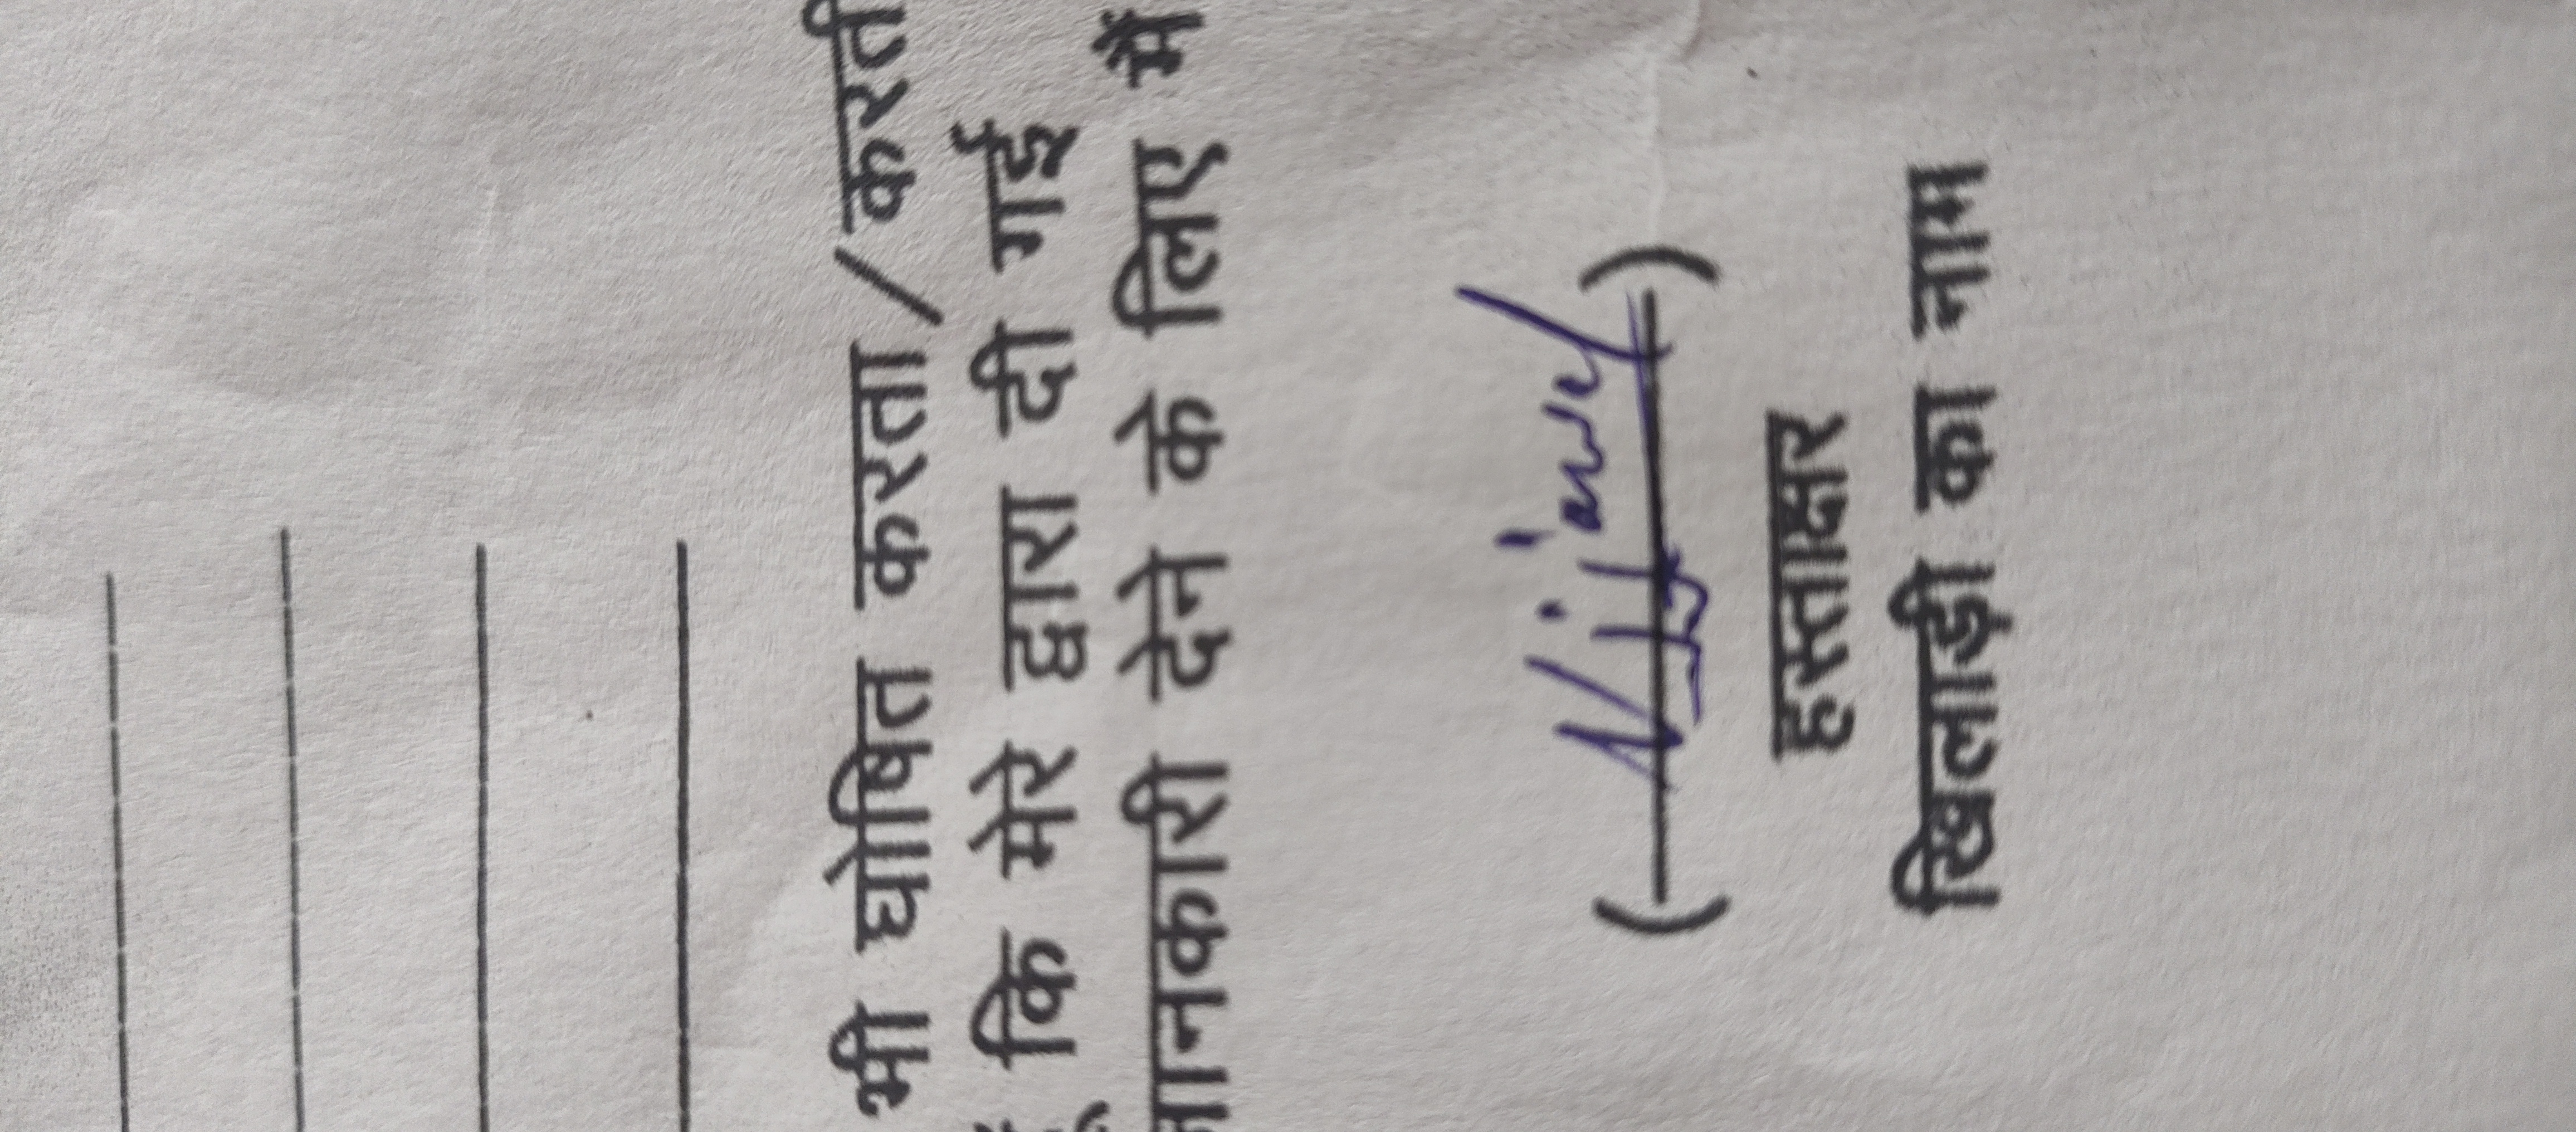 भी घोषित करता/करती
कि मेरे द्वारा दी गई
जानकारी देने के लिए मैं
( )
हस्ताक्षर
खिलाड़ी का नाम